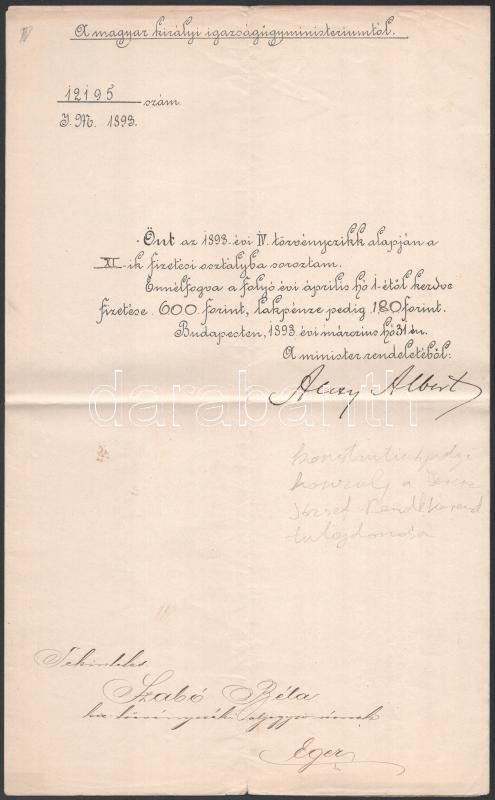 A magyar királyi igazságügyministeriumtól.
12195 szám.
I. M. 1893.
Önt az 1893. évi IV. törvényczikk alapján a
XI.-ik fizetési osztályba soroztam.
Ennélfogva a folyó évi április hó 1-étől kezdve
fizetése 600 forint, lakpénze pedig 180 forint.
Budapesten, 1893. évi márczius hó 31-én.
A minister rendeletéből:
Albert
darabanth
a Ferenc
József Rendkereszt
tulajdonosa
Tekintetes
Szabó Béla
kir. törvényszéki aljegyző úrnak
Eger